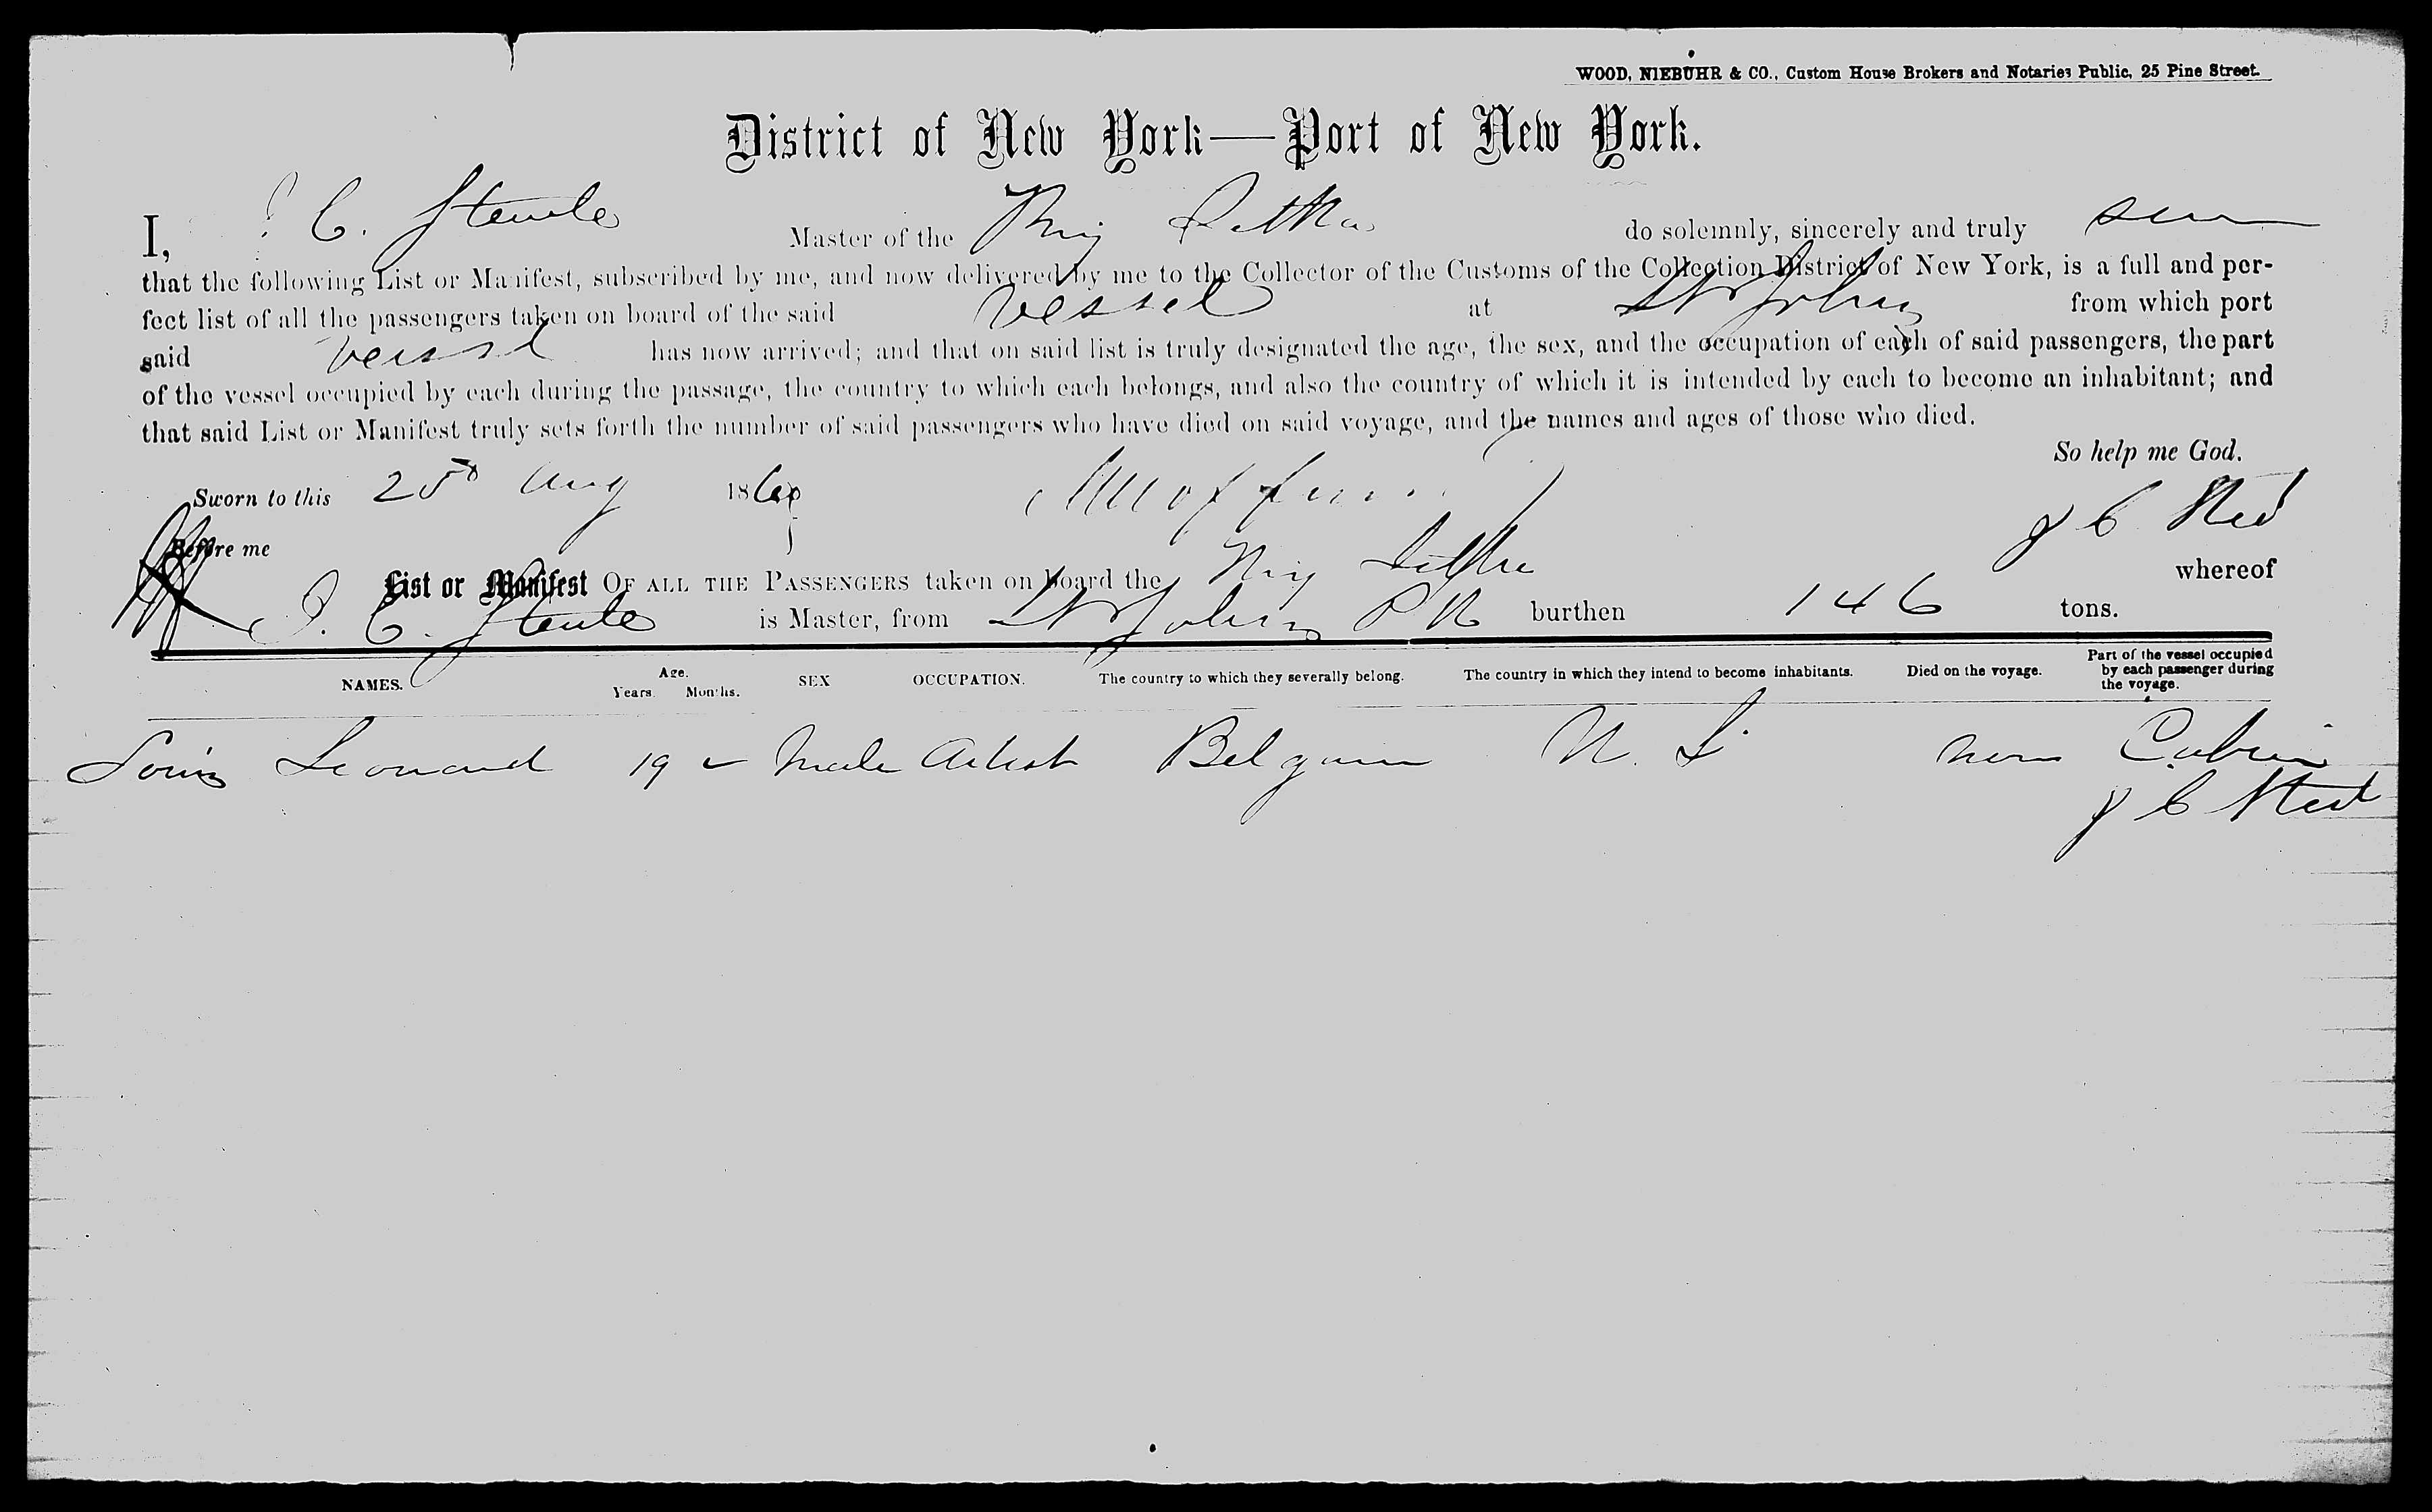 WOOD, NIEBUHR & CO., Custom House Brokers and Notaries Public, 25 Pine Street.
District of New York—Port of New York.
I, C. Master of the Brig do solemnly, sincerely and truly
that the following List or Manifest, subscribed by me, and now delivered by me to the Collector of the Customs of the Collection District of New York, is a full and per-
fect list of all the passengers taken on board of the said vessel at St Johns from which port
said vessel has now arrived; and that on said list is truly designated the age, the sex, and the occupation of each of said passengers, the part
of the vessel occupied by each during the passage, the country to which each belongs, and also the country of which it is intended by each to become an inhabitant; and
that said List or Manifest truly sets forth the number of said passengers who have died on said voyage, and the names and ages of those who died.
So help me God.
Sworn to this 25 Aug 186
J C
Before me
List or Manifest OF ALL THE PASSENGERS taken on board the Brig whereof
J. C. is Master, from St Johns P R burthen 146 tons.
NAMES. Age. Years. Months. SEX OCCUPATION. The country to which they severally belong. The country in which they intend to become inhabitants. Died on the voyage. Part of the vessel occupied by each passenger during the voyage.
Louis Leonard 19 Male Artist Belgium U. S none Cabin
J C